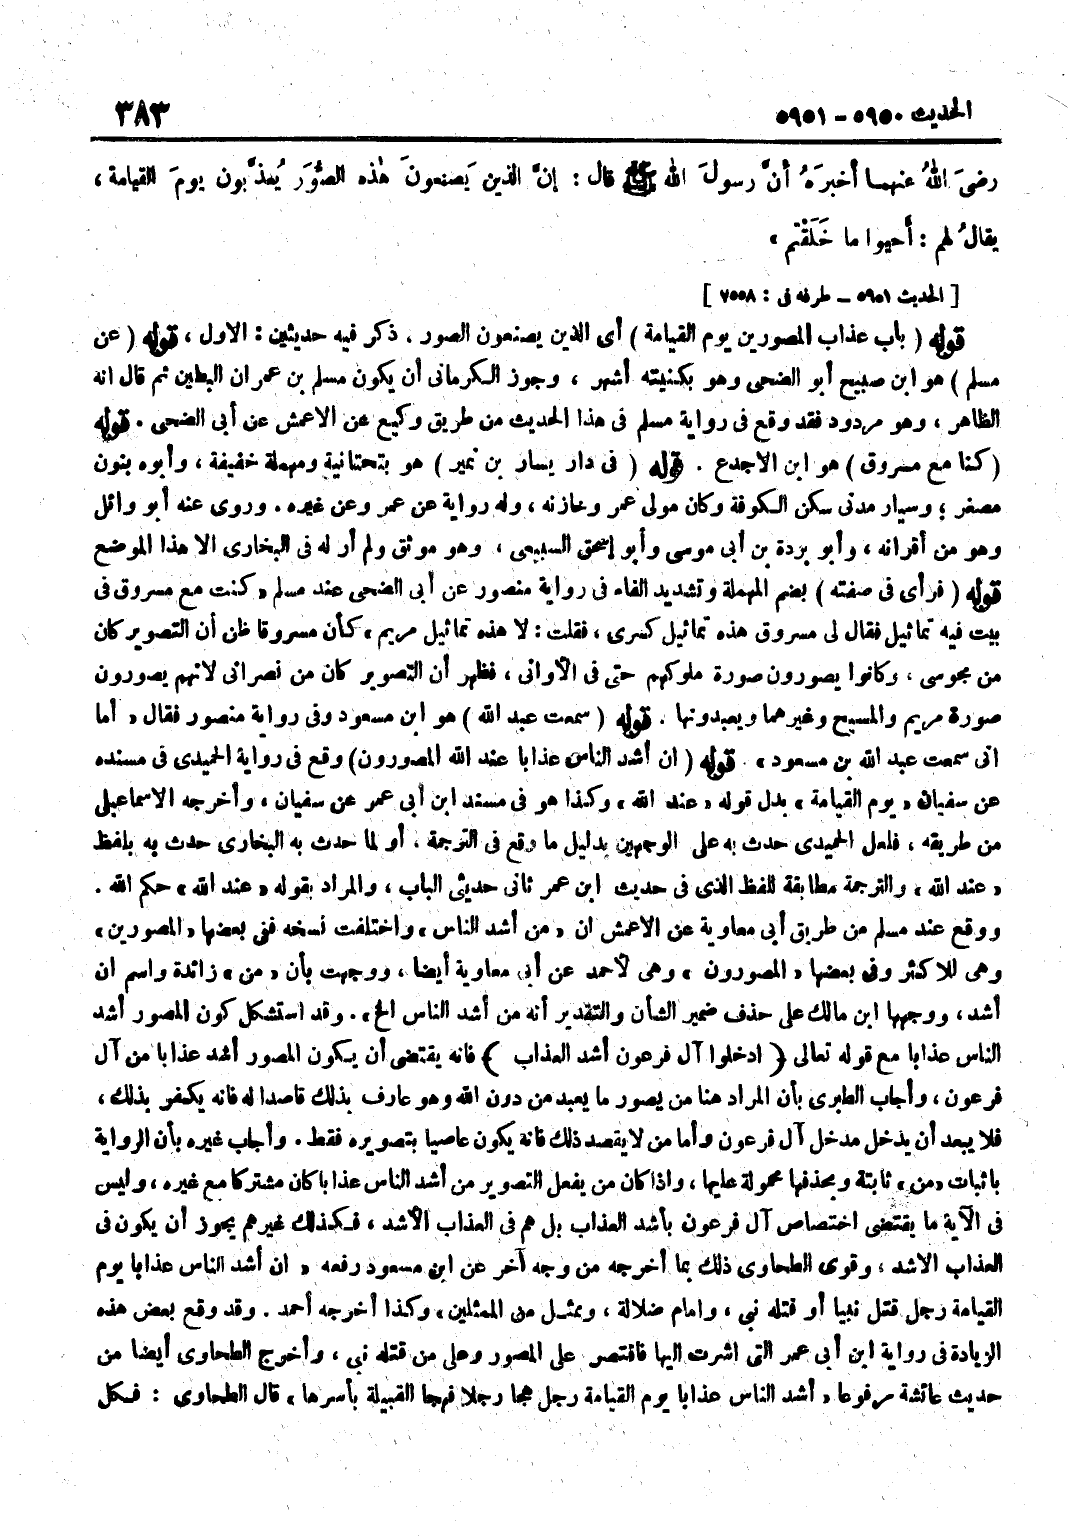 الحديث ٥٩٥٠ - ٥٩٥١
٣٨٣
رضىَ اللهُ عنهما أخبرَهُ أنَّ رسولَ الله ﷺ قال : إنَّ الذين يَصنعونَ هٰذه الصُّوَر يُعذَّبون يومَ القيامة ،
يقالُ لهم : أحيوا ما خَلَقْتم »
[ الحديث ٥٩٥١ - طرفه فى : ٧٥٥٨ ]
قوله ( باب عذاب المصورين يوم القيامة ) أى الذين يصنعون الصور . ذكر فيه حديثين : الاول ، قوله ( عن
مسلم ) هو ابن صبيح أبو الضحى وهو بكنيته أشهر ، وجوز الكرمانى أن يكون مسلم بن عمران البطين ثم قال انه
الظاهر ، وهو مردود فقد وقع فى رواية مسلم فى هذا الحديث من طريق وكيع عن الاعمش عن أبى الضحى . قوله
( كنا مع مسروق ) هو ابن الاجدع . قوله ( فى دار يسار بن نمير ) هو بتحتانية ومهملة خفيفة ، وأبوه بنون
مصغر ؛ وسيار مدنى سكن الكوفة وكان مولى عمر وخازنه ، وله رواية عن عمر وعن غيره . وروى عنه أبو وائل
وهو من أقرانه ، وأبو بردة بن أبى موسى وأبو إسحق السبيعى ، وهو موثق ولم أر له فى البخارى الا هذا الموضع
قوله ( فرأى فى صفته ) بضم المهملة وتشديد الفاء فى رواية منصور عن أبى الضحى عند مسلم « كنت مع مسروق فى
بيت فيه تماثيل فقال لى مسروق هذه تماثيل كسرى ، فقلت : لا هذه تماثيل مريم » كأن مسروقا ظن أن التصوير كان
من مجوسى ، وكانوا يصورون صورة ملوكهم حتى فى الأوانى ، فظهر أن التصوير كان من نصرانى لانهم يصورون
صورة مريم والمسيح وغيرهما ويعبدونها . قوله ( سمعت عبد الله ) هو ابن مسعود وفى رواية منصور فقال « أما
انى سمعت عبد الله بن مسعود » . قوله ( ان أشد الناس عذابا عند الله المصورون ) وقع فى رواية الحميدى فى مسنده
عن سفيان « يوم القيامة » بدل قوله « عند الله » وكذا هو فى مسند ابن أبى عمر عن سفيان ، وأخرجه الاسماعيلى
من طريقه ، فلعل الحميدى حدث به على الوجهين بدليل ما وقع فى الترجمة ، أو لما حدث به البخارى حدث به بلفظ
« عند الله » والترجمة مطابقة للفظ الذى فى حديث ابن عمر ثانى حديثى الباب ، والمراد بقوله « عند الله » حكم الله .
ووقع عند مسلم من طريق أبى معاوية عن الاعمش ان « من أشد الناس » واختلفت نسخه ففى بعضها « المصورين »
وهى للاكثر وفى بعضها « المصورون » وهى لأحمد عن أبى معاوية أيضا ، ووجهت بأن « من » زائدة واسم ان
أشد ، ووجهها ابن مالك على حذف ضمير الشأن والتقدير أنه من أشد الناس الخ » . وقد استشكل كون المصور أشد
الناس عذابا مع قوله تعالى ﴿ ادخلوا آل فرعون أشد العذاب ﴾ فانه يقتضى أن يكون المصور أشد عذابا من آل
فرعون ، وأجاب الطبرى بأن المراد هنا من يصور ما يعبد من دون الله وهو عارف بذلك قاصدا له فانه يكفر بذلك ،
فلا يبعد أن يدخل مدخل آل فرعون وأما من لا يقصد ذلك فانه يكون عاصيا بتصويره فقط . وأجاب غيره بأن الرواية
باثبات « من » ثابتة وبحذفها محمولة عليها ، واذا كان من يفعل التصوير من أشد الناس عذابا كان مشتركا مع غيره ، وليس
فى الآية ما يقتضى اختصاص آل فرعون بأشد العذاب بل هم فى العذاب الأشد ، فكذلك غيرهم يجوز أن يكون فى
العذاب الاشد ، وقوى الطحاوى ذلك بما أخرجه من وجه آخر عن ابن مسعود رفعه « ان أشد الناس عذابا يوم
القيامة رجل قتل نبيا أو قتله نبى ، وامام ضلالة ، وممثل من الممثلين » وكذا أخرجه أحمد . وقد وقع بعض هذه
الزيادة فى رواية ابن أبى عمر التى اشرت اليها فاقتصر على المصور وعلى من قتله نبى ، وأخرج الطحاوى أيضا من
حديث عائشة مرفوعا « أشد الناس عذابا يوم القيامة رجل هجا رجلا فهجا القبيلة بأسرها » قال الطحاوى : فكل